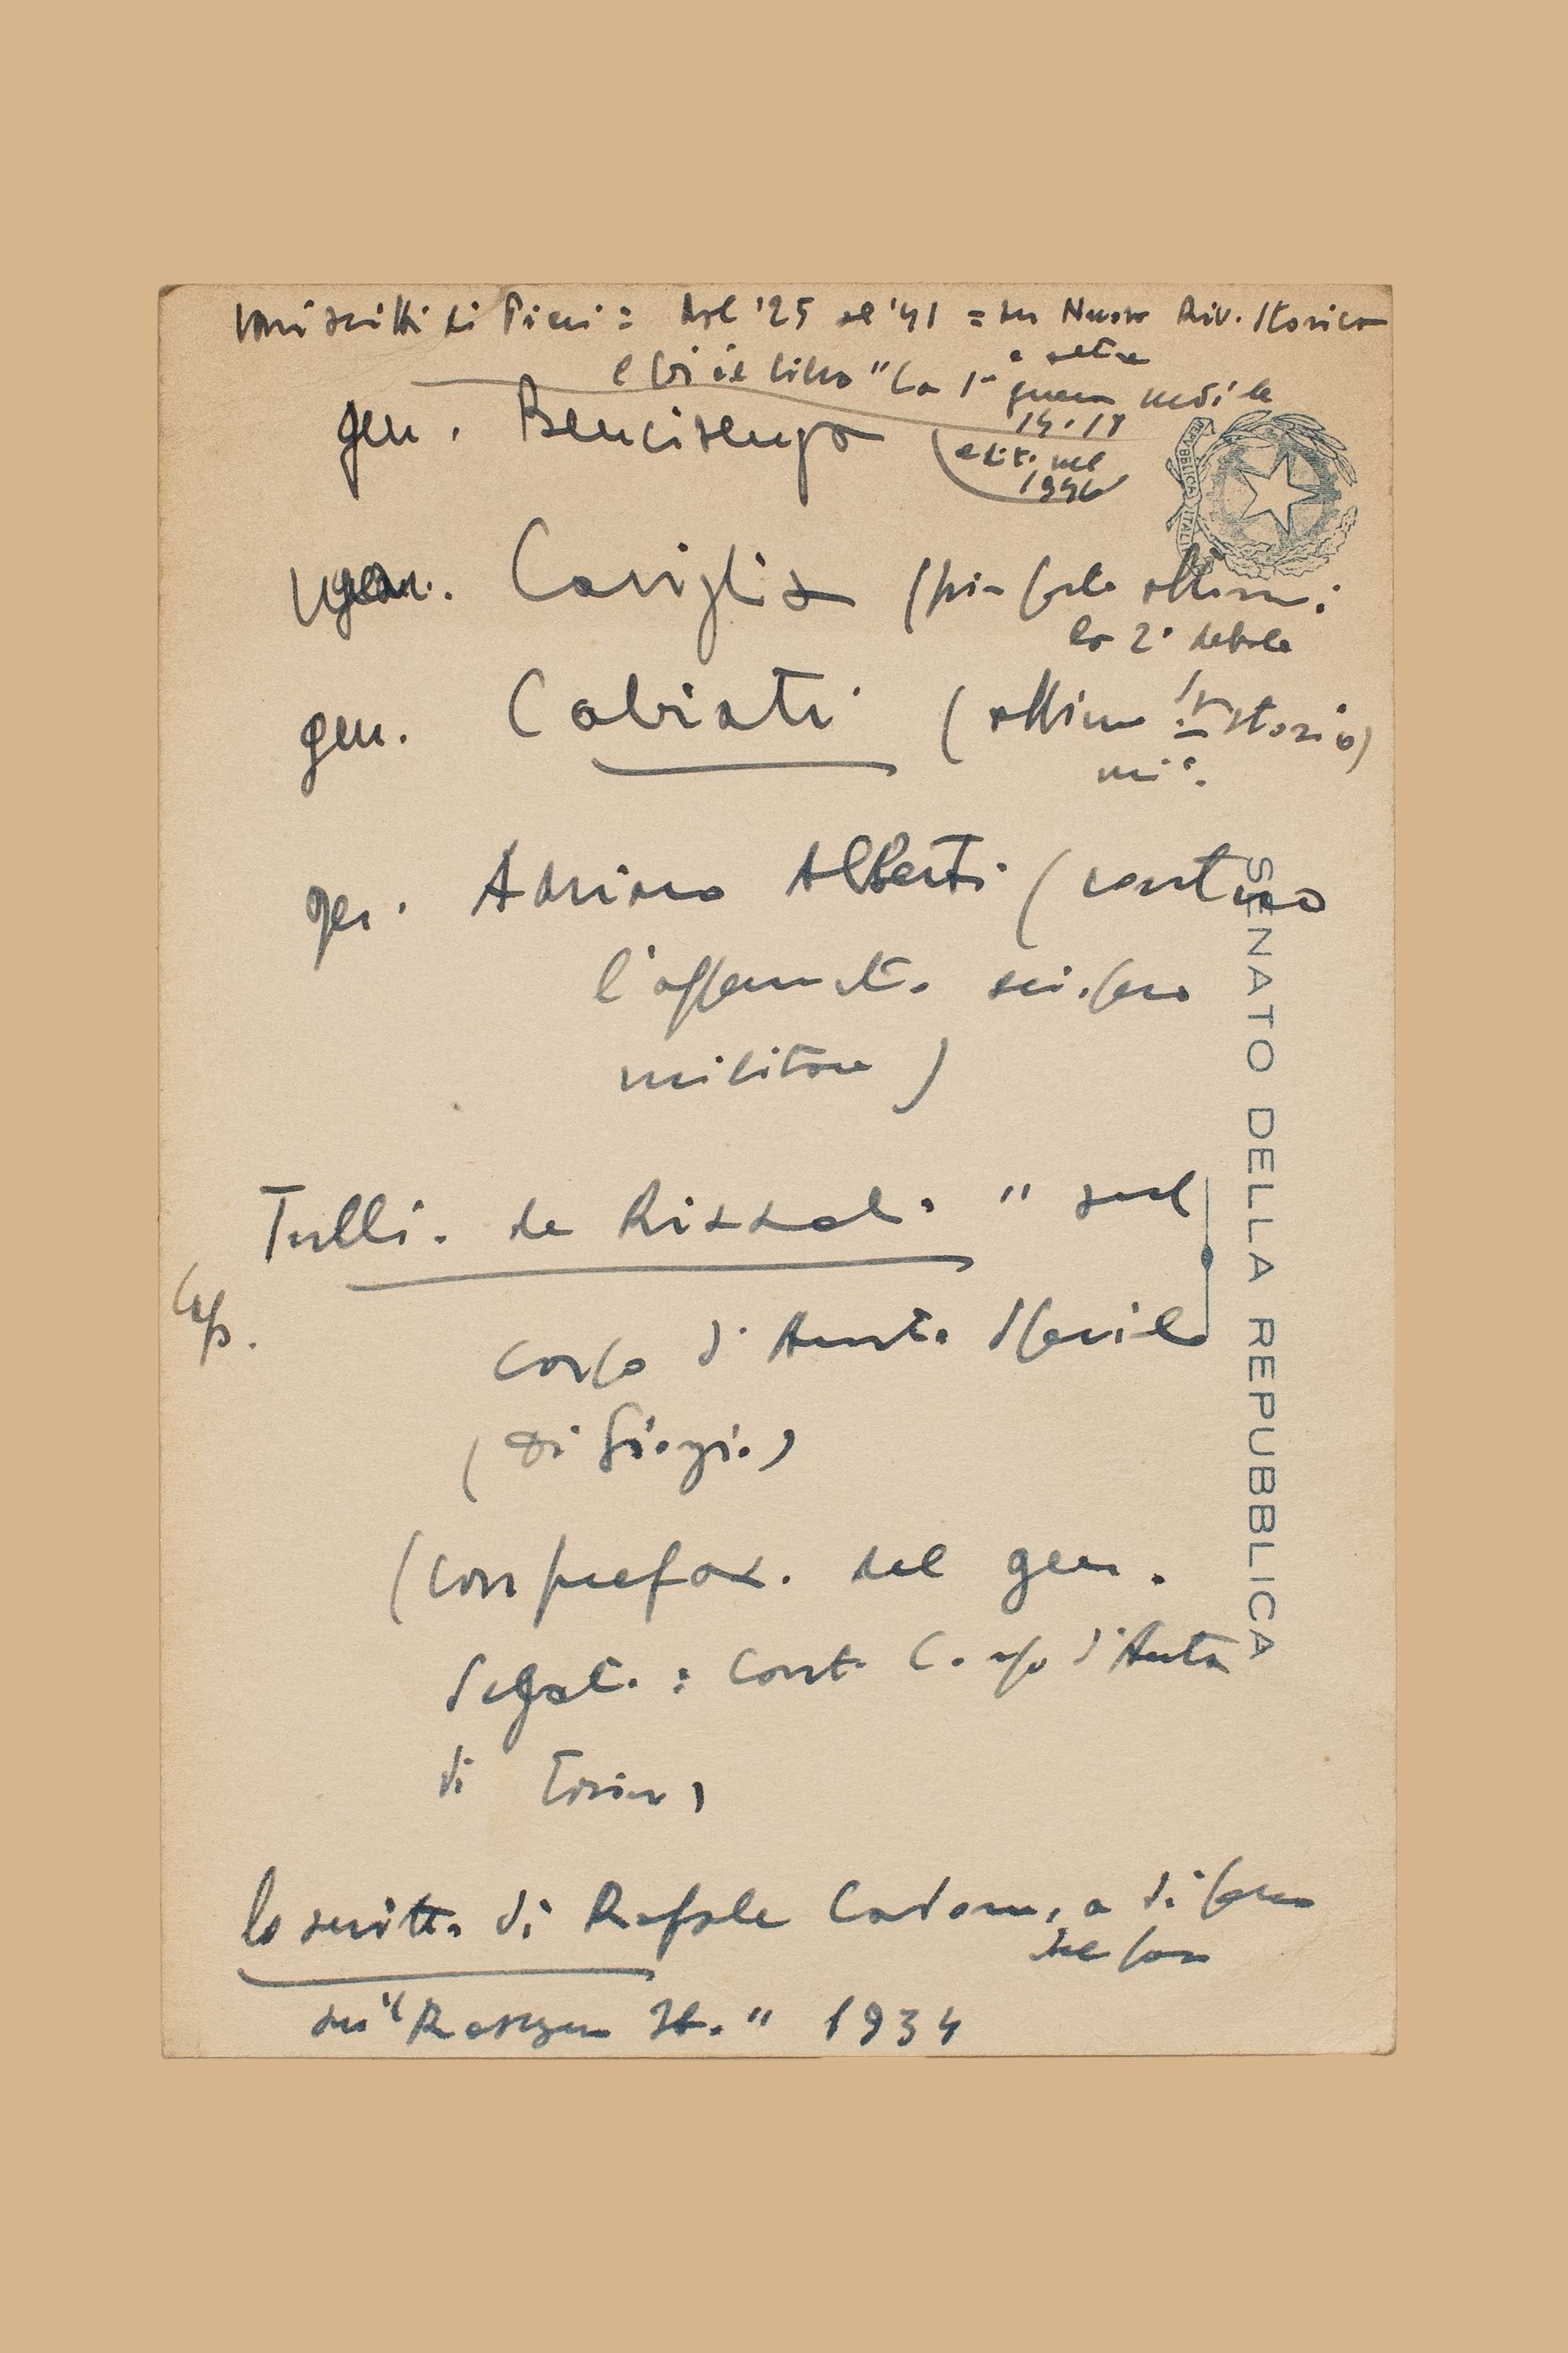 vari scritti di Pieri: dal '25 al '41 = su Nuova Riv. Storica
e altre
e poi il libro "La 1ª guerra mondiale
14-18
gen. Bencivenga
edit. nel
1946
gen. Caviglia (prima parte ottima;
la 2ª debole
gen. Cabiati (ottimo storico)
mil.
gen. Adriano Alberti (contro
l'affermato
militare)
Tullio de Rizzoli "sul
Cap.
Corpo d'Armata Speciale
(Di Giorgio)
(con prefaz. del gen.
Segato: Com. Corpo d'Armata
di Torino)
lo scritto di Raffaele Cadorna, a difesa
del pan
su "Rassegna It." 1934
REPUBBLICA ITALI
SENATO DELLA REPUBBLICA